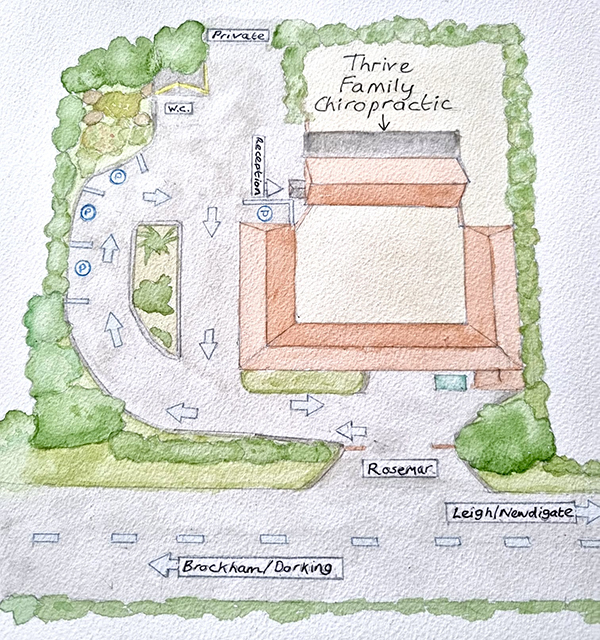 Private
Thrive
Family
Chiropractic
W.C.
Reception
P
P
P
P
Rosemar
Leigh/Newdigate
Brockham/Dorking